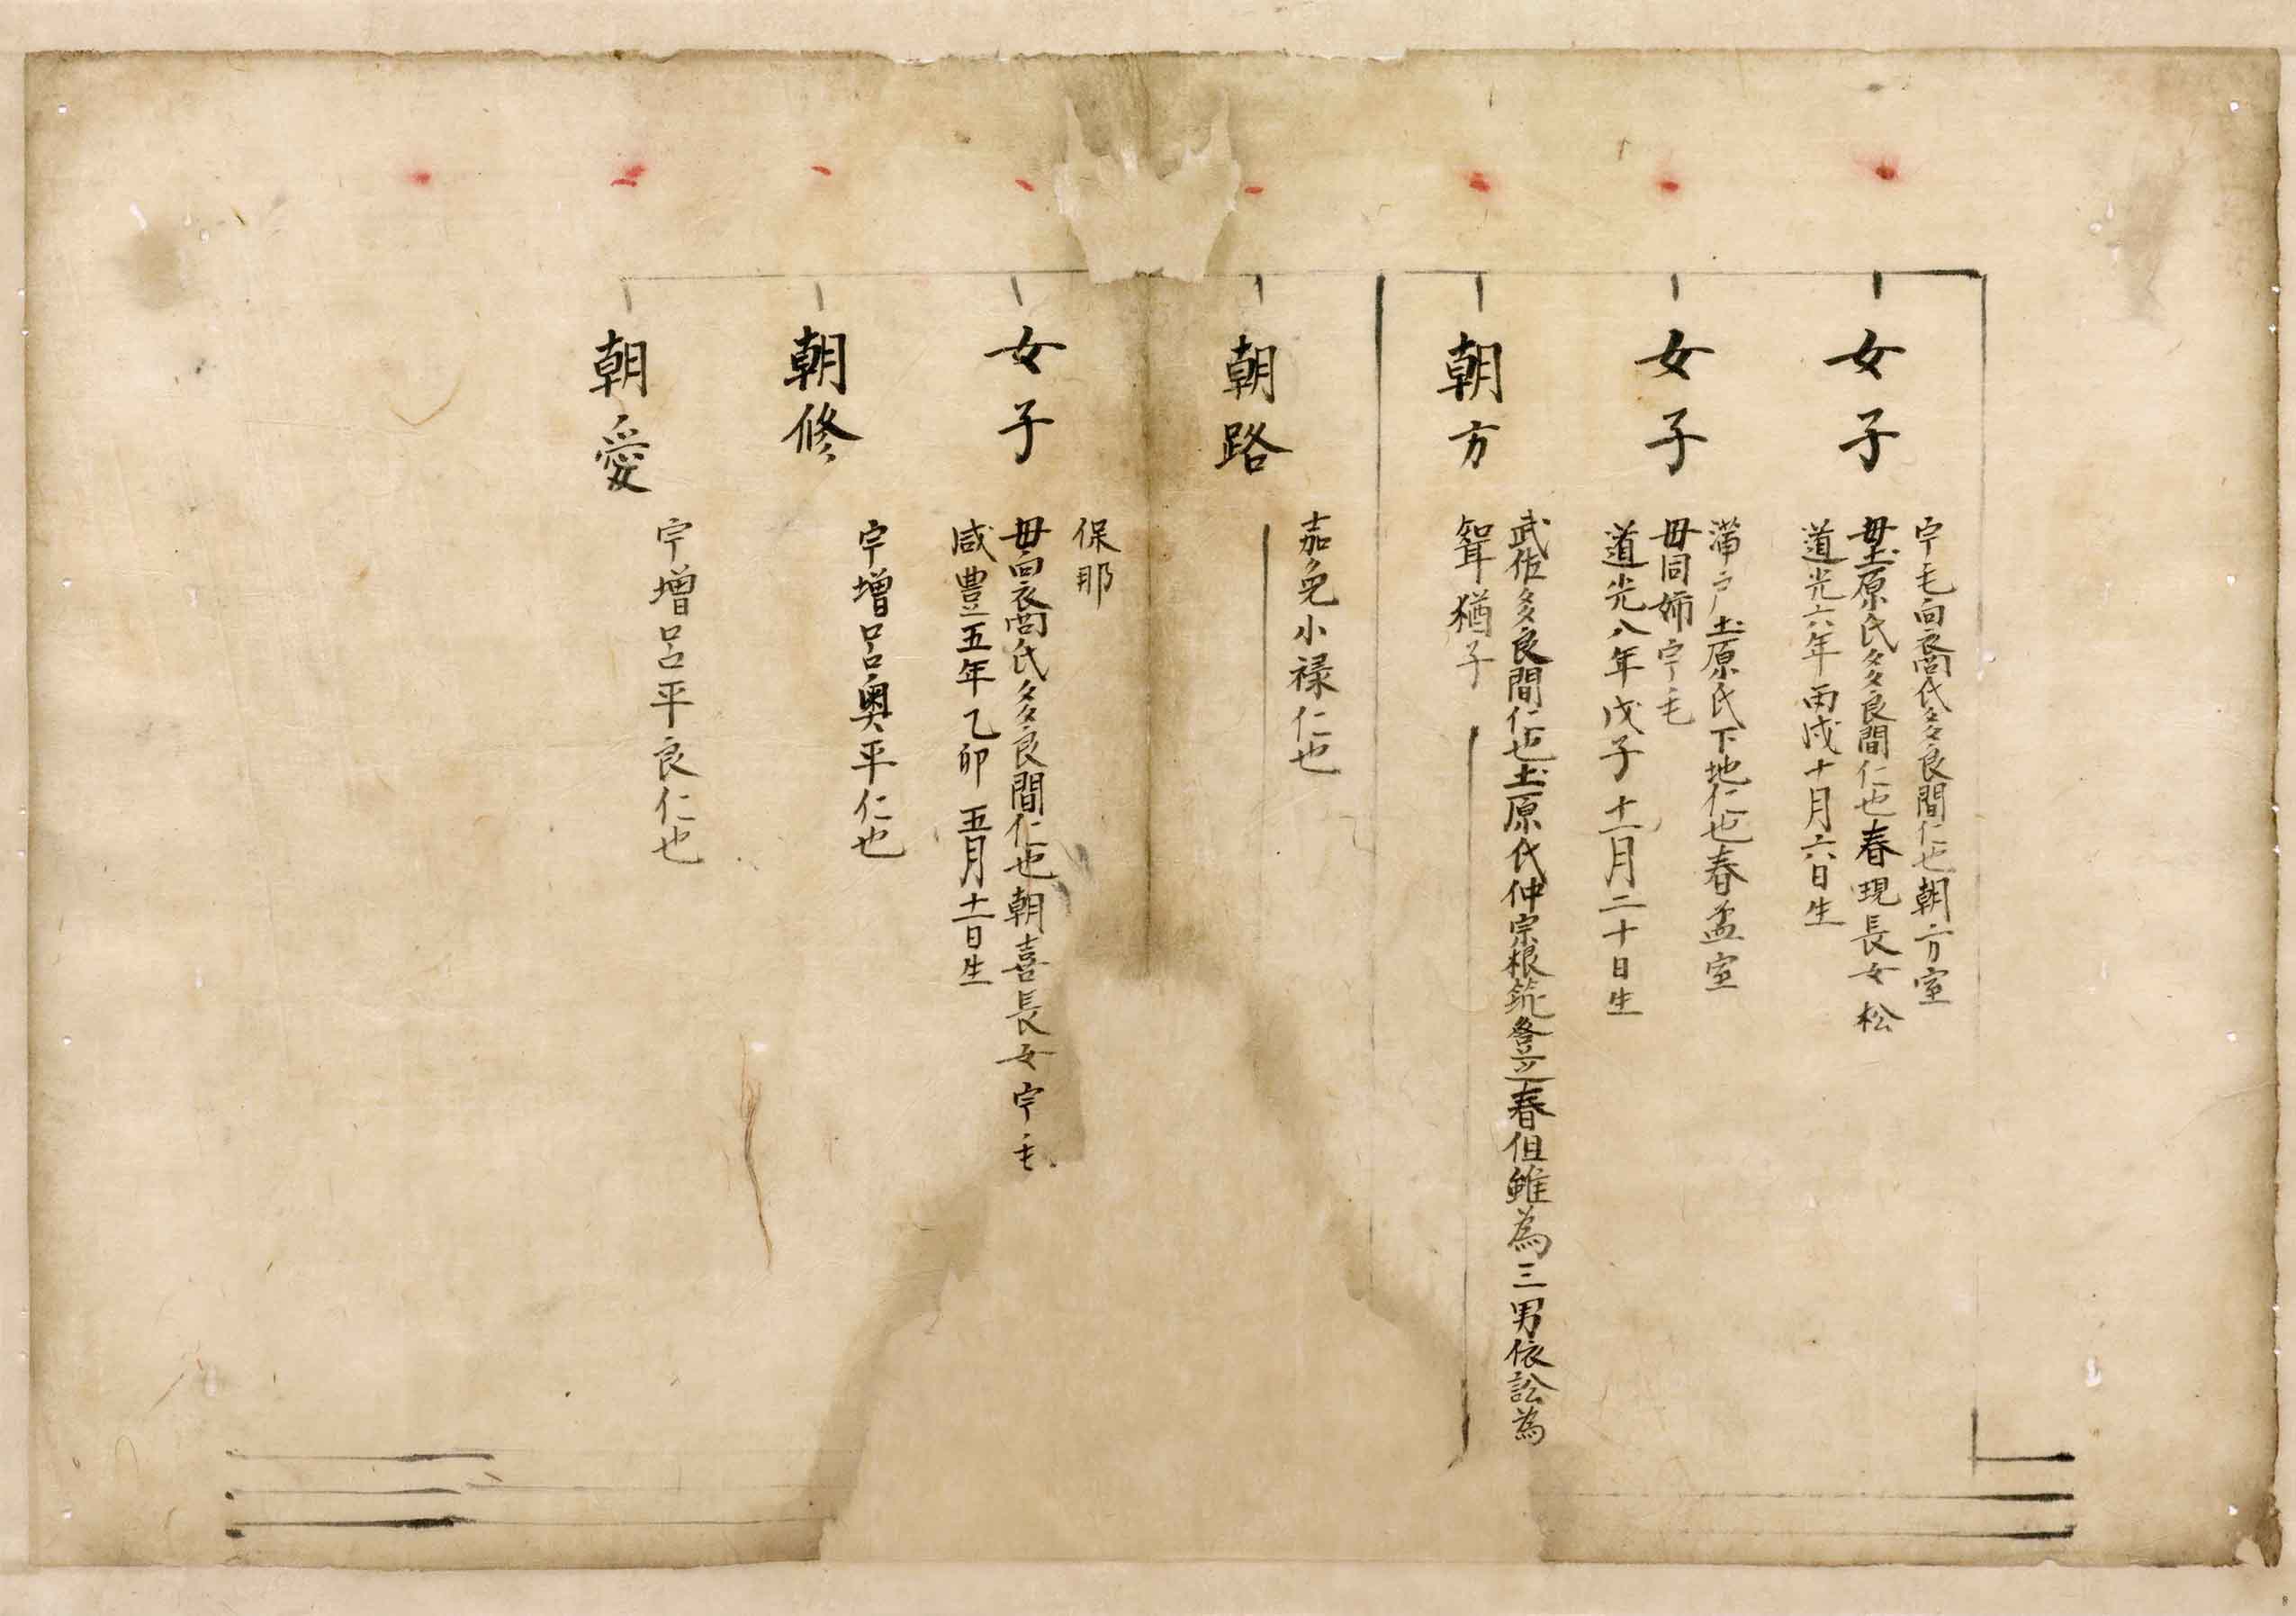 女子
宇毛向裔氏多良間仁也朝方室
母土原氏多良間仁也春現長女松
道光六年丙戌十月六日生
女子
蒲戸土原氏下地仁也春孟室
母同姉宇毛
道光八年戊子十一月二十日生
朝方
武佐多良間仁也土原氏仲宗根筑登之春但雖為三男依訟為
聟猶子
朝路
嘉免小禄仁也
女子
保那
母向裔氏多良間仁也朝喜長女宇毛
咸豊五年乙卯五月十一日生
朝修
宇增呂奥平仁也
朝愛
宇增呂平良仁也